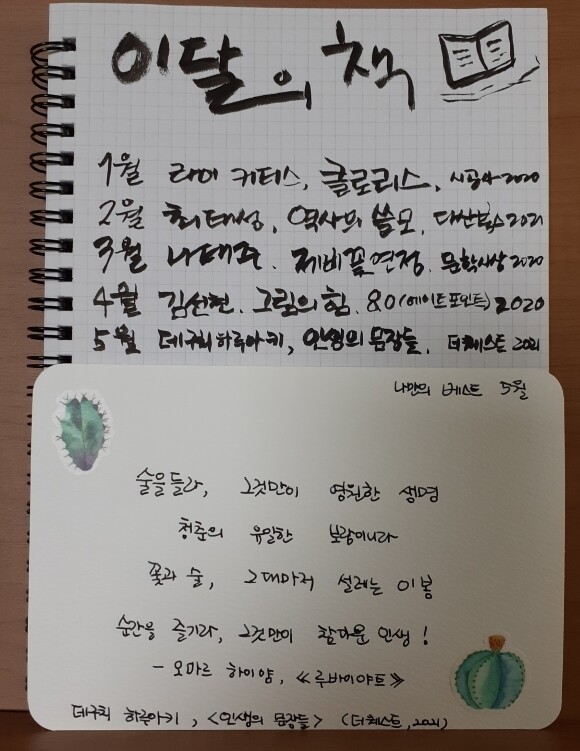 이달의 책
1월 라이 커티스, 클로리스, 시공사 2020
2월 최태성, 역사의 쓸모, 다산북스 2021
3월 나태주. 제비꽃연정. 문학사상 2020
4월 김선현. 그림의 힘. 80(에이트포인트) 2020
5월 데구치 하루아키, 인생의 문장들, 더퀘스트 2021
나만의 베스트 5월
술을 들라, 그것만이 영원한 생명
청춘의 유일한 보람이니라
꽃과 술, 그대마저 설레는 이 봄
순간을 즐기라, 그것만이 참다운 인생!
- 오마르 하이얌, 《루바이야트》
데구치 하루아키, <인생의 문장들> (더퀘스트, 2021)